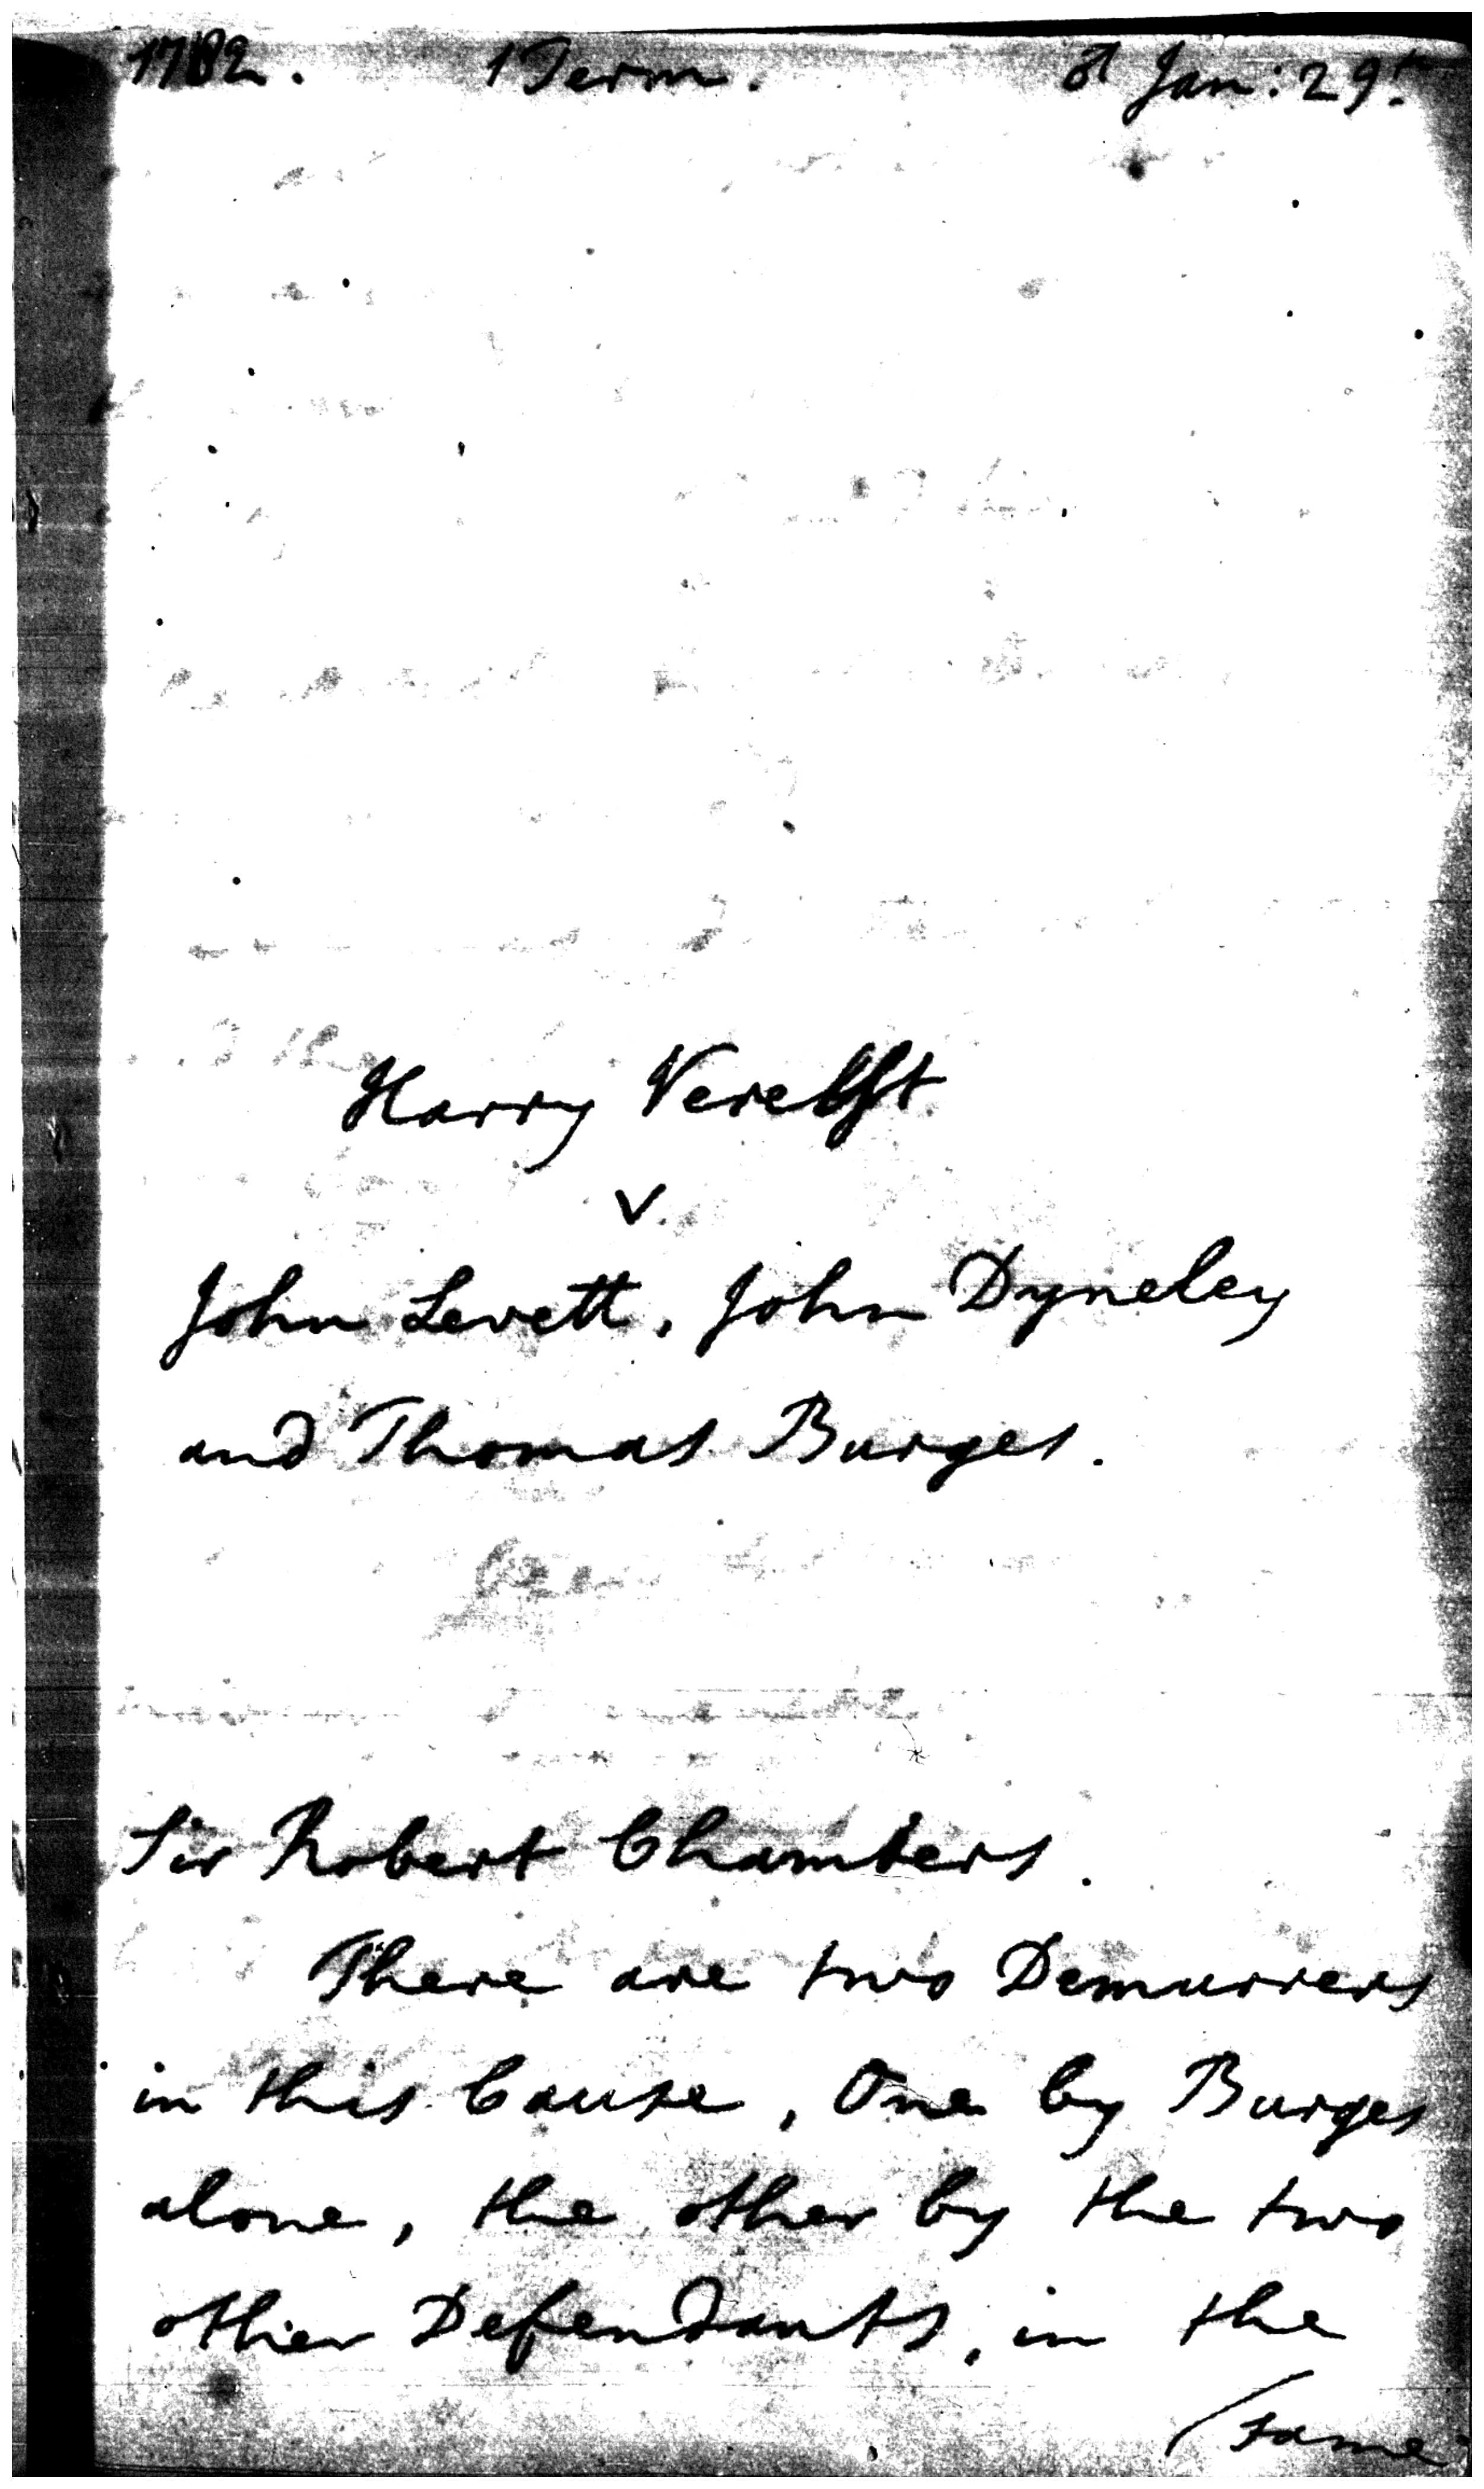 1782. 1 Term. ♂ Jan: 29th
Harry Verelst
v
John Levett, John Dyneley
and Thomas Burges.
Sir Robert Chambers.
There are two Demurrers
in this Cause, One by Burges
alone, the other by the two
other Defendants, in the
(same